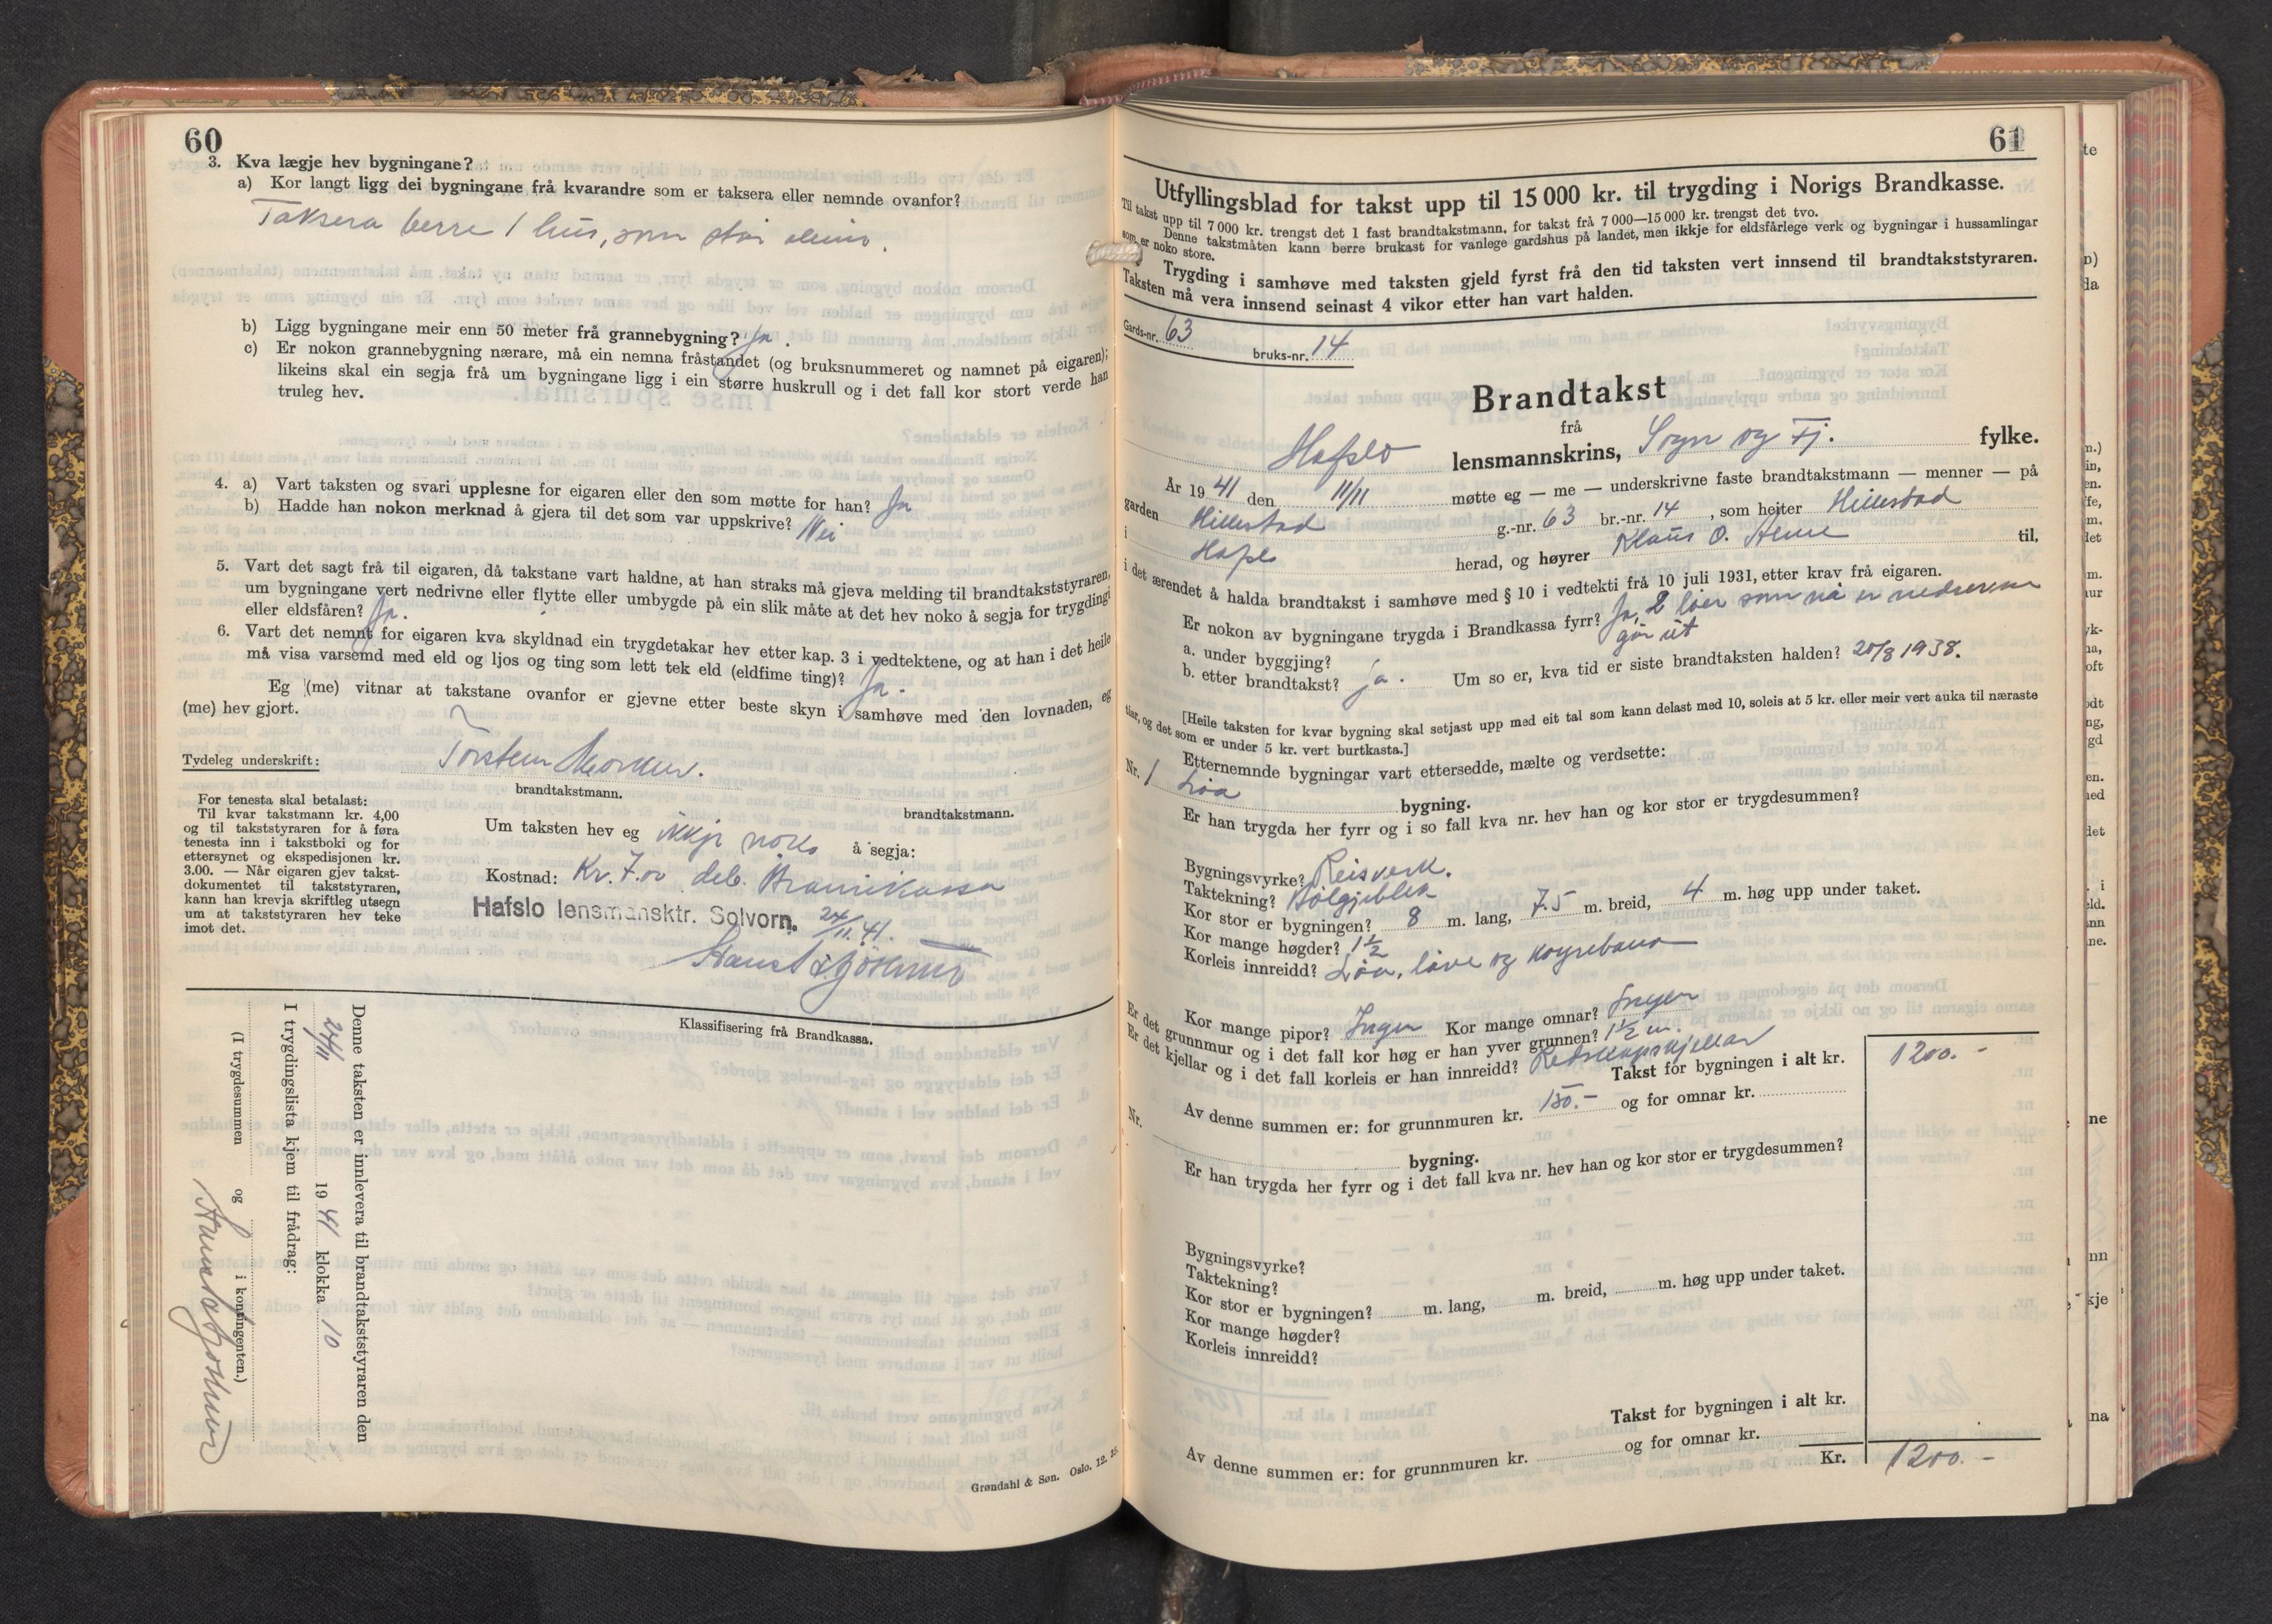 60
3. Kva lægje hev bygningane?
a) Kor langt ligg dei bygningane frå kvarandre som er taksera eller nemnde ovanfor?
Taksera berre 1 hus, som står aleine.
b) Ligg bygningane meir enn 50 meter frå grannebygning? Ja.
c) Er nokon grannebygning nærare, må ein nemna fråstandet (og bruksnummeret og namnet på eigaren);
likeins skal ein segja frå um bygningane ligg i ein større huskrull og i det fall kor stort verde han
truleg hev.
4. a) Vart taksten og svari upplesne for eigaren eller den som møtte for han? Ja
b) Hadde han nokon merknad å gjera til det som var uppskrive? Nei
5. Vart det sagt frå til eigaren, då takstane vart haldne, at han straks må gjeva melding til brandtakststyraren,
um bygningane vert nedrivne eller flytte eller umbygde på ein slik måte at det hev noko å segja for trygdingi
eller eldsfåren? Ja.
6. Vart det nemnt for eigaren kva skyldnad ein trygdetakar hev etter kap. 3 i vedtektene, og at han i det heile
må visa varsemd med eld og ljos og ting som lett tek eld (eldfime ting)? Ja.
Eg (me) vitnar at takstane ovanfor er gjevne etter beste skyn i samhøve med den lovnaden, eg
(me) hev gjort.
Tydeleg underskrift: Torstein
brandtakstmann.
brandtakstmann.
For tenesta skal betalast:
Til kvar takstmann kr. 4,00
og til takststyraren for å føra
tenesta inn i takstboki og for
ettersynet og ekspedisjonen kr.
3.00. — Når eigaren gjev takst-
dokumentet til takststyraren,
kann han krevja skriftleg utsegn
um at takststyraren hev teke
imot det.
Um taksten hev eg ikkje noko å segja:
Kostnad: Kr. 7.00 deb. Brannkassa
Hafslo lensmansktr. Solvorn. 24/11.41.
Klassifisering frå Brandkassa.
Denne taksten er innlevera til brandtakststyraren den
24/11 1941 klokka 10
I trygdingslista kjem til frådrag:
(I trygdesummen og i kontingenten.)
Grøndahl & Søn. Oslo. 12.
61
Utfyllingsblad for takst upp til 15 000 kr. til trygding i Norigs Brandkasse.
Til takst upp til 7 000 kr. trengst det 1 fast brandtakstmann, for takst frå 7 000—15 000 kr. trengst det tvo.
Denne takstmåten kann berre brukast for vanlege gardshus på landet, men ikkje for eldsfårlege verk og bygningar i hussamlingar
som er noko store.
Trygding i samhøve med taksten gjeld fyrst frå den tid taksten vert innsend til brandtakststyraren.
Taksten må vera innsend seinast 4 vikor etter han vart halden.
Gards-nr. 63 bruks-nr. 14
Brandtakst
frå
Hafslo lensmannskrins, Sogn og Fj. fylke.
År 1941 den 11/11 møtte eg — me — underskrivne faste brandtakstmann — menner — på
garden Hillestad g.-nr. 63 br.-nr. 14, som heiter Hillestad
i Hafslo herad, og høyrer Klaus O. til,
i det ærendet å halda brandtakst i samhøve med § 10 i vedtekti frå 10 juli 1931, etter krav frå eigaren.
Er nokon av bygningane trygda i Brandkassa fyrr? Ja, 2 løer som nå er nedrevne
går ut
a. under byggjing?
b. etter brandtakst? ja. Um so er, kva tid er siste brandtaksten halden? 20/8 1938.
[Heile taksten for kvar bygning skal setjast upp med eit tal som kann delast med 10, soleis at 5 kr. eller meir vert auka til næraste
tiar, og det som er under 5 kr. vert burtkasta.]
Etternemnde bygningar vart ettersedde, mælte og verdsette:
Nr. 1 Løa bygning.
Er han trygda her fyrr og i so fall kva nr. hev han og kor stor er trygdesummen?
Bygningsvyrke? Reisverk.
Taktekning? Bølgjeblek
Kor stor er bygningen? 8 m. lang, 7.5 m. breid, 4 m. høg upp under taket.
Kor mange høgder? 1½
Korleis innreidd? Løa, låve og køyrebana
Kor mange pipor? Ingen Kor mange omnar? Ingen
Er det grunnmur og i det fall kor høg er han yver grunnen? 1½ m.
Er det kjellar og i det fall korleis er han innreidd? Reiskapskjellar
Takst for bygningen i alt kr. 1200.-
Av denne summen er: for grunnmuren kr. 150.- og for omnar kr.
Nr. bygning.
Er han trygda her fyrr og i det fall kva nr. hev han og kor stor er trygdesummen?
Bygningsvyrke?
Taktekning?
Kor stor er bygningen? m. lang, m. breid, m. høg upp under taket.
Kor mange høgder?
Korleis innreidd?
Takst for bygningen i alt kr.
Av denne summen er: for grunnmuren kr. og for omnar kr.
Kr. 1200.-